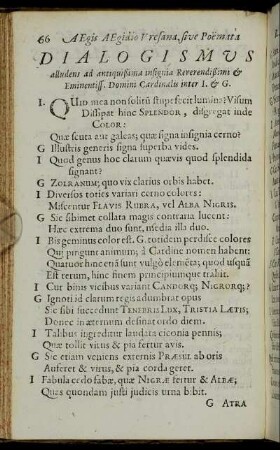 66 AEgis AEgidio Vresana, sive Poëmata
DIALOGISMVS
alludens ad antiquissima insignia Reverendissimi &
Eminentiss. Domini Cardinalis inter I. & G.
I. Quid mea non solitū stupefecit lumina? Visum
Dissipat hinc SPLENDOR, disgregat inde
COLOR:
Quæ scuta aut galeas; quæ signa insignia cerno?
G Illustris generis signa superba vides.
I Quod genus hoc clarum quævis quod splendida
signant?
G ZOLRANUM; quo vix clarius orbis habet.
I Diversos toties variari cerno colores:
Miscentur FLAVIS RUBRA, vel ALBA NIGRIS.
G Sic sibimet collata magis contraria lucent:
Hæc extrema duo sunt, media illa duo.
I Bis geminus color est. G. totidem perdisce colores
Qui pingunt animum; à Cardine nomen habent:
Quatuor hinc enā sunt vulgò elemēta; quod usquā
Est rerum, hinc finem principiumque trahit.
I Cur binis vicibus variant CANDORQ; NIGRORQ;?
G Ignoti id clarum regis adumbrat opus
Sic sibi succedunt TENEBRIS LUX, TRISTIA LÆTIS;
Donec in æternum desinat ordo diem.
I Talibus ingreditur laudata ciconia pennis;
Quæ tollit vitus & pia fertur avis.
G Sic etiam veniens externis PRÆSUL ab oris
Auferet & vitus, & pia corda geret.
I Fabula cedo fabæ, quæ NIGRÆ fertur & ALBÆ;
Quas quondam justi judicis urna bibit.
G ATRA